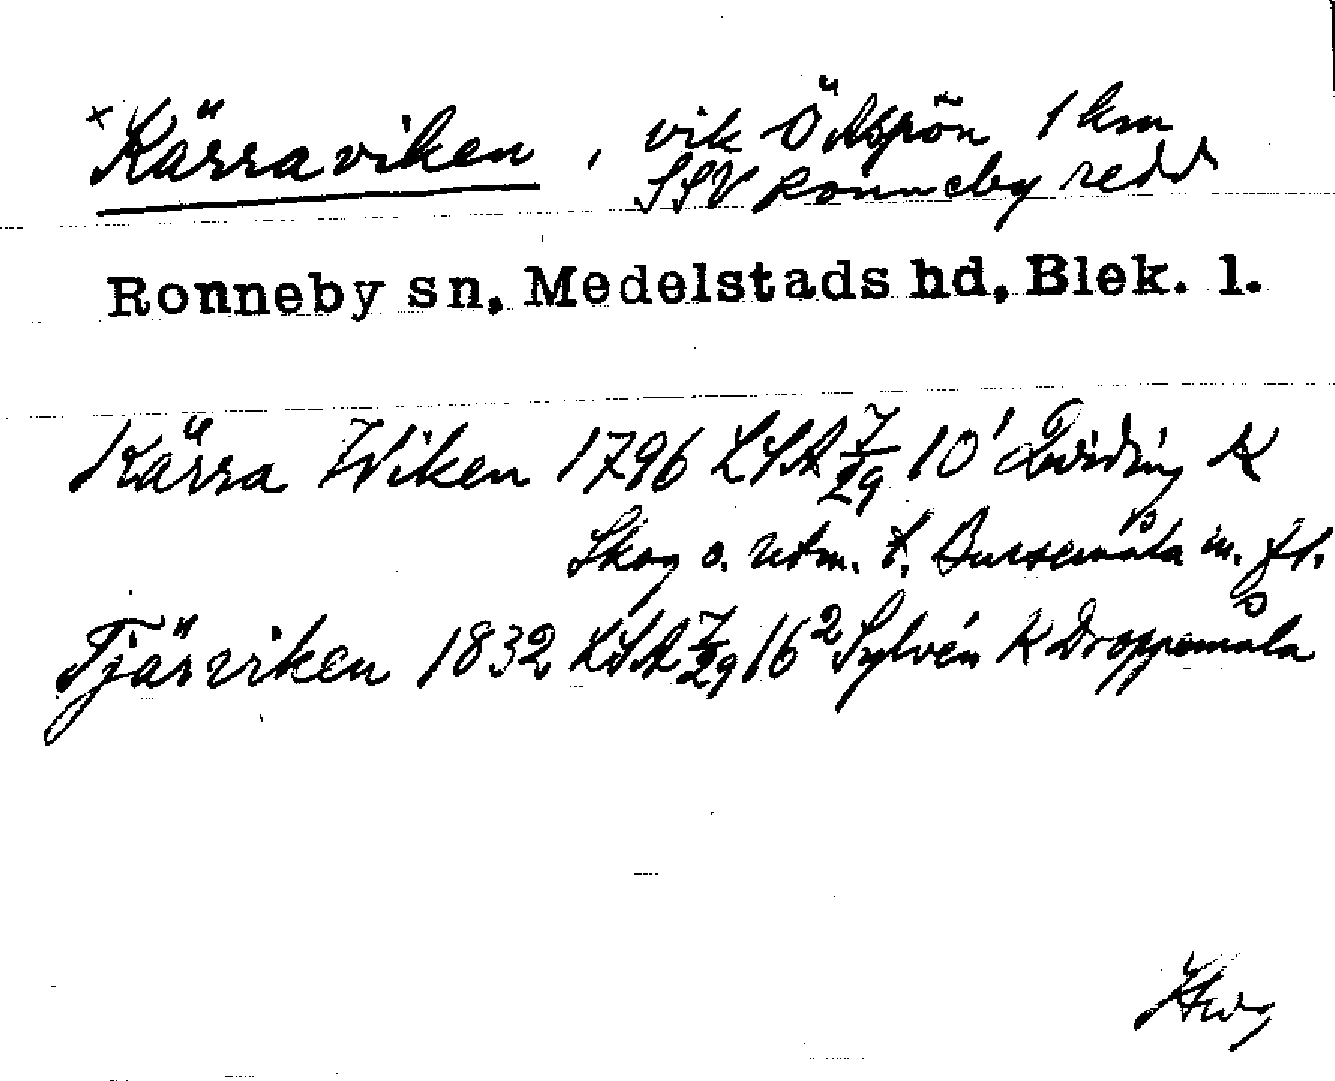 × Kärraviken, vik Ö Aspön 1 km
SSV Ronneby redd
Ronneby sn, Medelstads hd, Blek. l.
Kärra Wiken 1796 LSA 7/29 10' K
Skog o. utm. t. Bussemåla m. fl.
Tjärviken 1832 LSA 7/29 16² Sylvén K Droppemåla